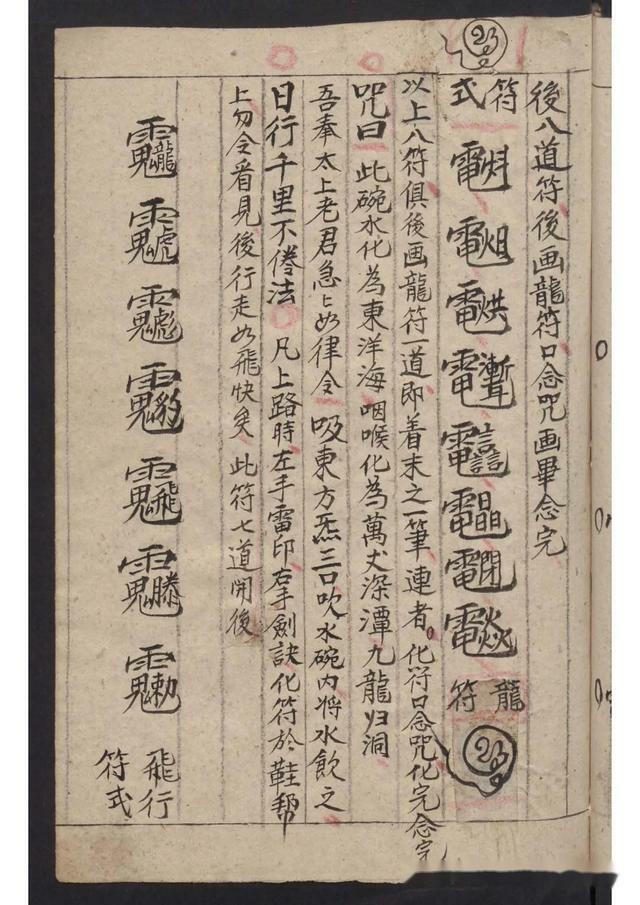 後八道符後画龍符口念咒画畢念完
符式
龍符
以上八符俱後画龍符一道即着末之一筆連者。化符口念咒化完念完
咒曰 此碗水化為東洋海咽喉化為萬丈深潭九龍归洞
吾奉太上老君急急如律令 吸東方炁三口吹水碗内将水飲之
日行千里不倦法 凡上路時左手雷印右手劍訣化符於鞋帮
上勿令看見後行走如飛快矣 此符七道開後
飛行
符式